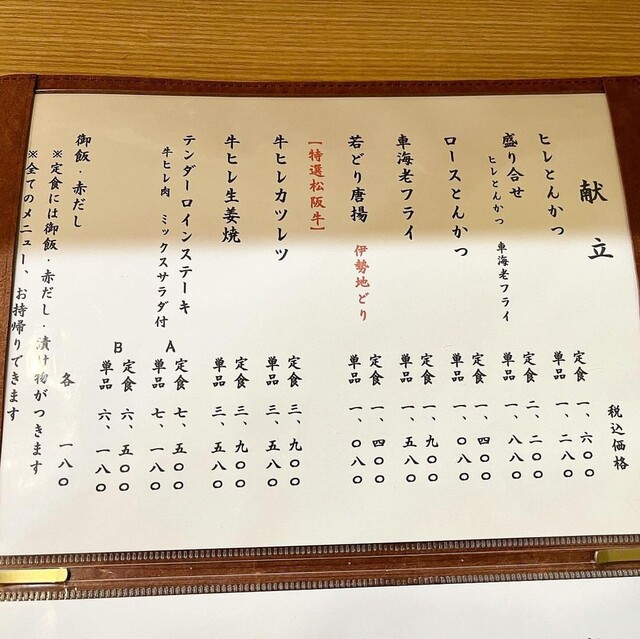 献立
税込価格
ヒレとんかつ
定食 一、六〇〇
単品 一、二八〇
盛り合せ
ヒレとんかつ 車海老フライ
定食 二、二〇〇
単品 一、八八〇
ロースとんかつ
定食 一、四〇〇
単品 一、〇八〇
車海老フライ
定食 一、九〇〇
単品 一、五八〇
若どり唐揚 伊勢地どり
定食 一、四〇〇
単品 一、〇八〇
【特選松阪牛】
牛ヒレカツレツ
定食 三、九〇〇
単品 三、五八〇
牛ヒレ生姜焼
定食 三、九〇〇
単品 三、五八〇
テンダーロインステーキ
牛ヒレ肉 ミックスサラダ付
A 定食 七、五〇〇
単品 七、一八〇
B 定食 六、五〇〇
単品 六、一八〇
御飯・赤だし 各 一八〇
※定食には御飯・赤だし・漬け物がつきます
※全てのメニュー、お持帰りできます